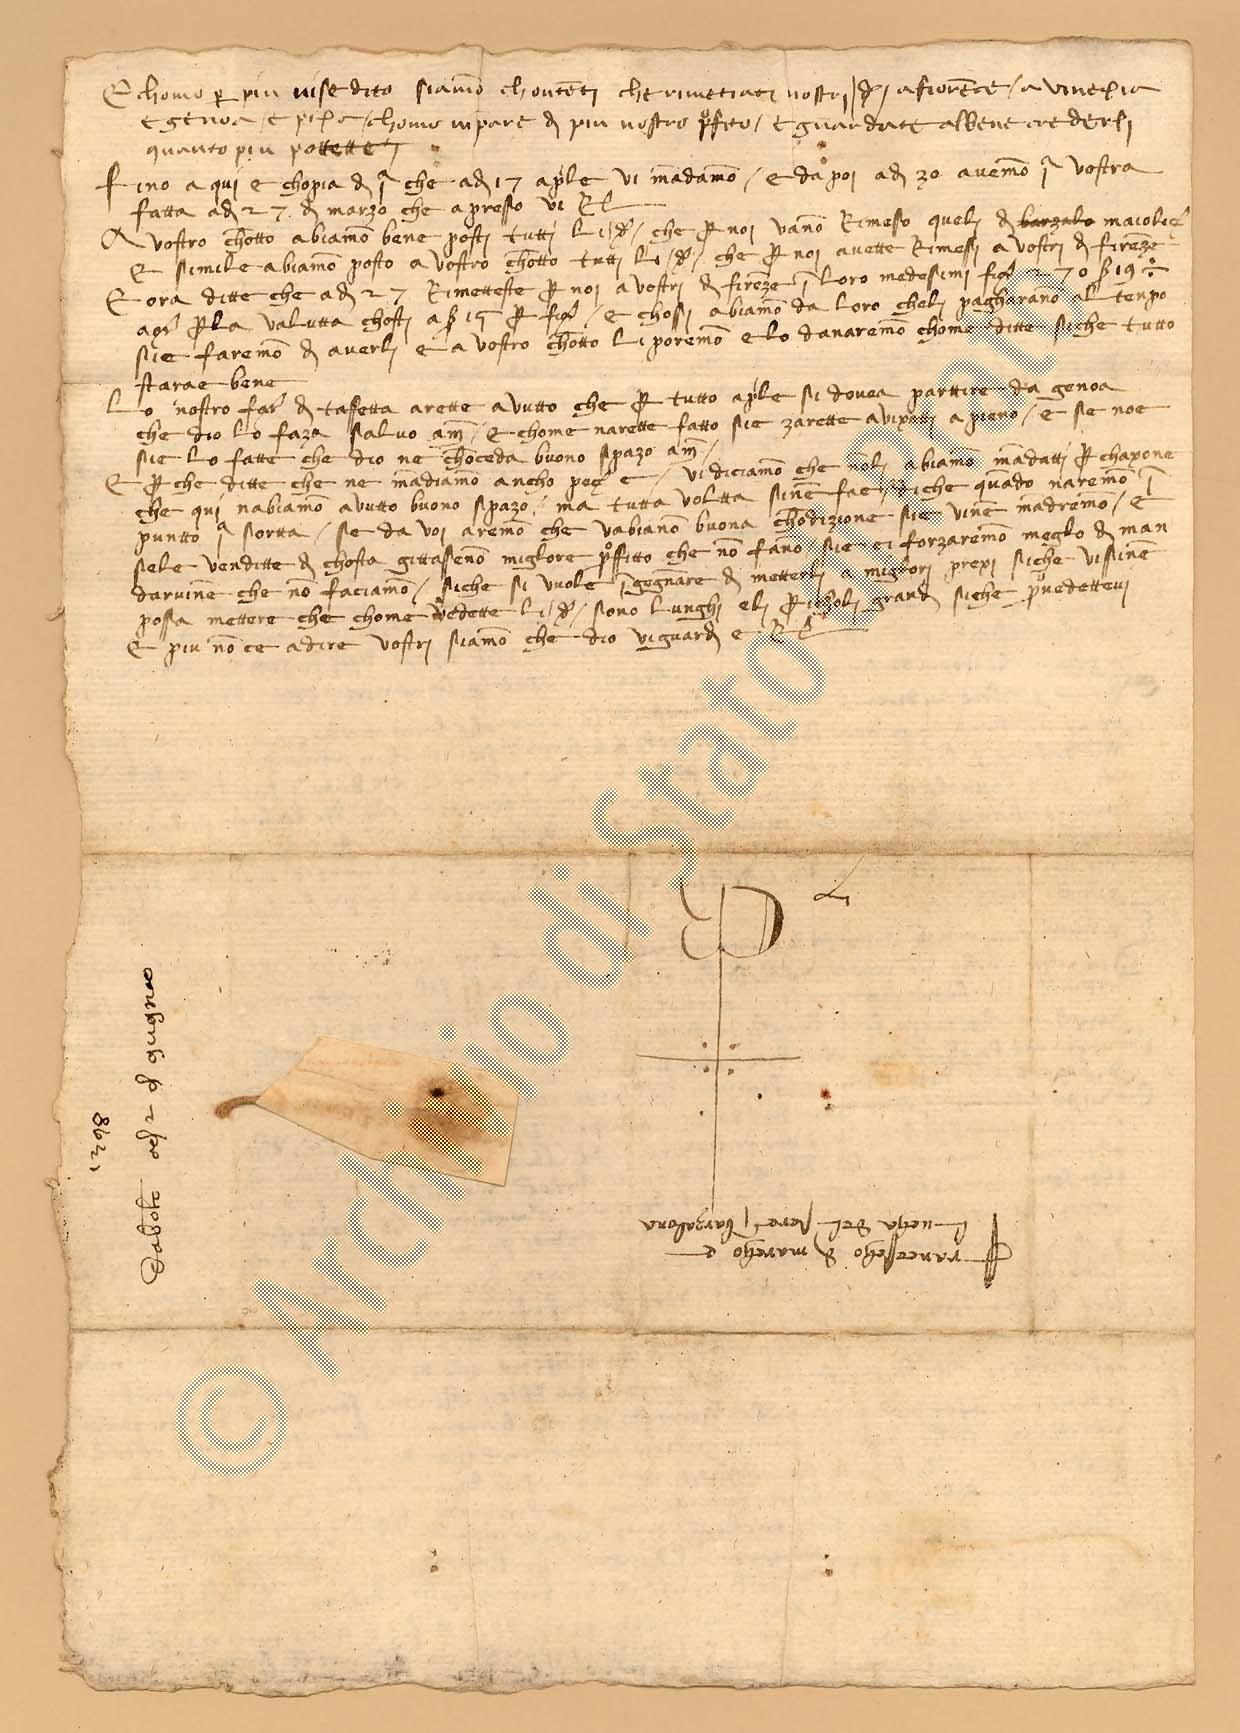 E chomo per piu vise dito siamo chonteti che rimettiati nostri d. a fiorence / a vinexia
e genoa / e pixa / chomo vi pare di piu nostro profito / e guardate al bene crederli
quanto piu potette
Fino a qui e chopia di j.a che adi 17 aprile vi madamo / e da poi adi 30 avemo j.a vostra
fatta adi 27 di marzo che apresso vi R.
A vostro chotto abiamo bene posti tutti li d. / che per noi vano Rimesso queli di barzalo maiolich
E simile abiamo posto a vostro chotto tutti li d. / che per noi avette Rimessi a vostri di firenze
E ora ditte che adi 27 Rimetteste per noi a vostri di firenze i loro medesimi 70 s 19
per la valutta chosti a s 15 per / e chossi abiamo da loro cheli pagharano al tenpo
sie faremo di averli e a vostro chotto li poremo e lo danaremo chome ditte siche tutto
starae bene
Lo nostro far. di tafetta arette avutto che per tutto aprile si dovea parttire da genoa
che dio lo faza salvo am / E chome narette fatto sie zarette avixati a pieno / e se noe
sie lo fatte che dio ne choceda buono spazo am /
E per che ditte che ne madiamo ancho peçe / vi diciamo che noli abiamo madatti per chaxone
che qui nabiamo avutto buono spazo / ma tutta voltta sine fae / diche quado naremo i
puntto j.a sortta / se da voi aremo che vabiano buona chodizione sie vine madremo / E
sele venditte di chosta gittaseno migliore proffitto che no fano sie ci forzaremo meglo di man
darvine che no faciamo / siche si vuole igegnare di metterli a migliori prexi siche vissine
possa mettere che chome vedette li d. / sono lunghi eli pericholi grandi siche provedettevi
E piu no ce a dire vostri siamo che dio vi guardi e R.
Francescho di marcho e
lucha del sera / barzalona
1398
da bolo adi 2 di gugno